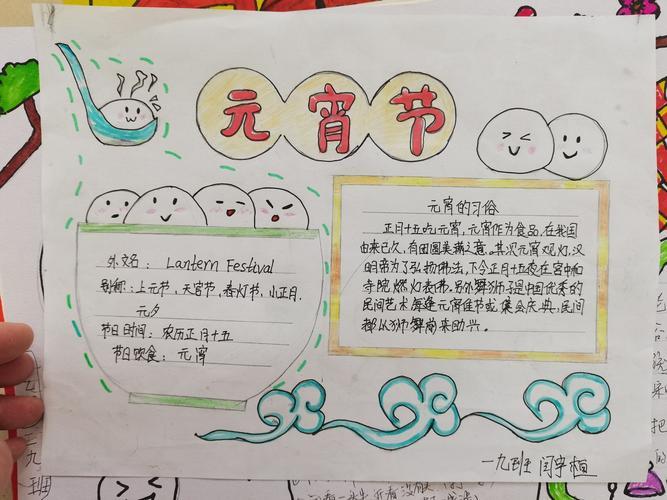 元宵节
外文名：Lantern Festival
别称：上元节，天官节，春灯节，小正月，
元夕
节日时间：农历正月十五
节日饮食：元宵
元宵的习俗
正月十五吃元宵，元宵作为食品，在我国
由来已久，有团圆美满之意。其次元宵观灯，汉
明帝为了弘扬佛法，下令正月十五夜在宫中和
寺院燃灯表佛，另外舞狮子是中国优秀的
民间艺术，每逢元宵佳节或集会庆典，民间
都以狮舞前来助兴。
一九班 闫宇桓